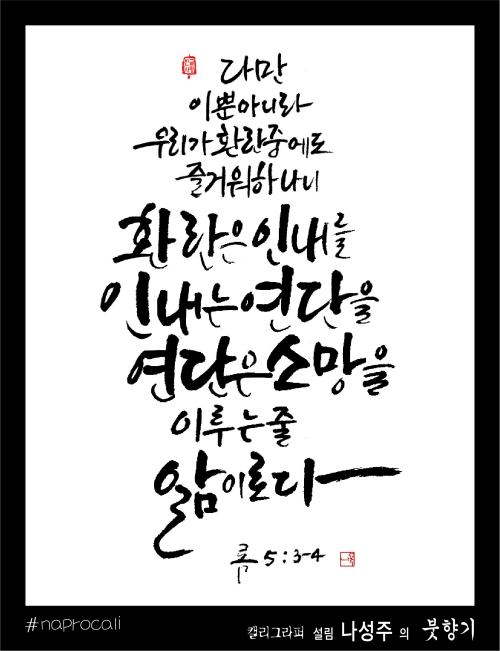 다만
이뿐아니라
우리가환란중에도
즐거워하나니
환란은인내를
인내는연단을
연단은소망을
이루는줄
앎이로다
롬 5:3-4
#naprocali
캘리그라퍼 설림 나성주 의 붓향기